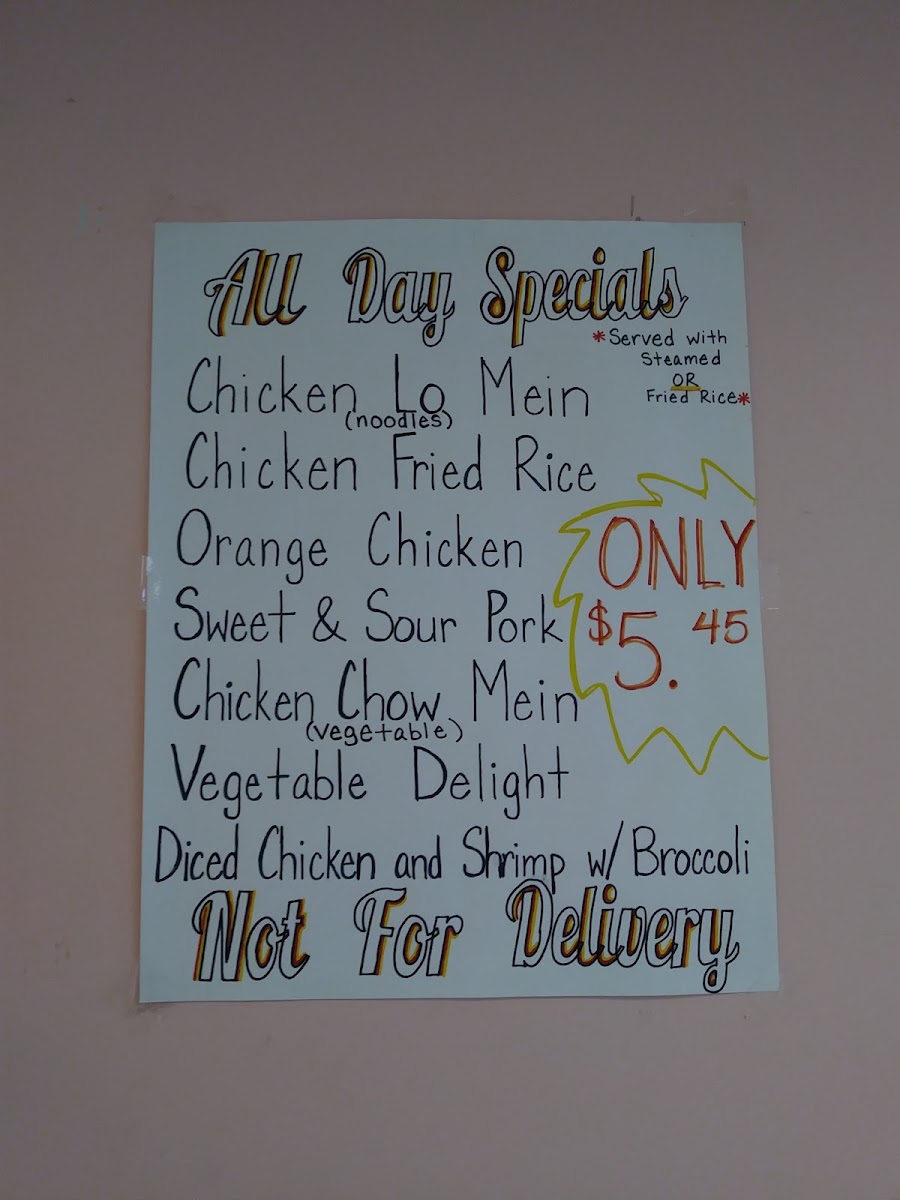 All Day Specials
*Served with
Steamed
OR
Fried Rice*
Chicken Lo Mein
(noodles)
Chicken Fried Rice
Orange Chicken
Sweet & Sour Pork
Chicken Chow Mein
(vegetable)
Vegetable Delight
Diced Chicken and Shrimp w/ Broccoli
ONLY
$5.45
Not For Delivery